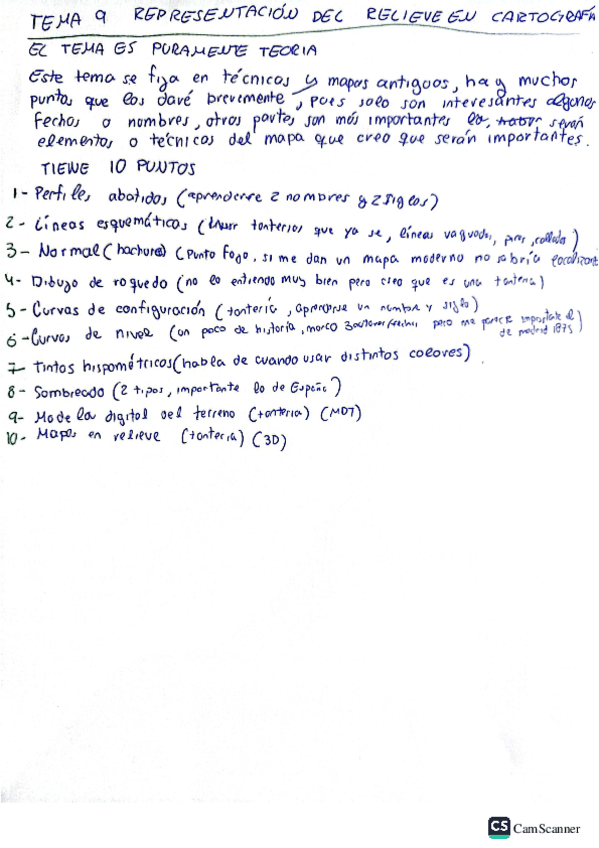 TEMA 9 REPRESENTACIÓN DEL RELIEVE EN CARTOGRAFÍA
EL TEMA ES PURAMENTE TEORIA
Este tema se fija en técnicas y mapas antiguos, hay muchos
puntos que los daré brevemente, pues solo son interesantes algunas
fechas o nombres, otras partes son más importantes serán
elementos o técnicas del mapa que creo que serán importantes.
TIENE 10 PUNTOS
1- Perfiles abatidos (aprenderse 2 nombres y 2 siglos)
2- Líneas esquemáticas (tonterias que ya se, líneas vaguada, collado)
3- Normal (hachures) (Punto fogo, si me dan un mapa moderno no sabría localizarte
4- Dibujo de roquedo (no lo entiendo muy bien pero creo que es una tonteria)
5- Curvas de configuración (tontería, aprenderse un nombre y siglo)
6- Curvas de nivel (un poco de historia, marco pero me parece importante el de madrid 1875)
7- Tintas hispométricas (habla de cuando usar distintos colores)
8- Sombreado (2 tipos, importante lo de España)
9- Modela digital del terreno (tonteria) (MDT)
10- Mapas en relieve (tonteria) (3D)
CS CamScanner